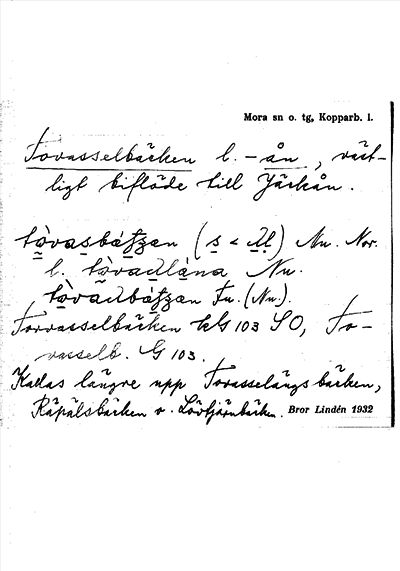 Mora sn o. tg, Kopparb. l.
Tovasselbäcken l. -ån, väst-
ligt biflöde till Järkån.
tòvasbátʒen (s < dl) Nu. Nor.
l. tòvadlána Nu.
tòvadbátʒen Fu. (Nu.).
Torvasselbäcken kG 103 SO, To-
vasselb. G 103.
Kallas längre upp Tovasselängsbäcken,
Räpälsbäcken o. Lövtjärnbäcken. Bror Lindén 1932